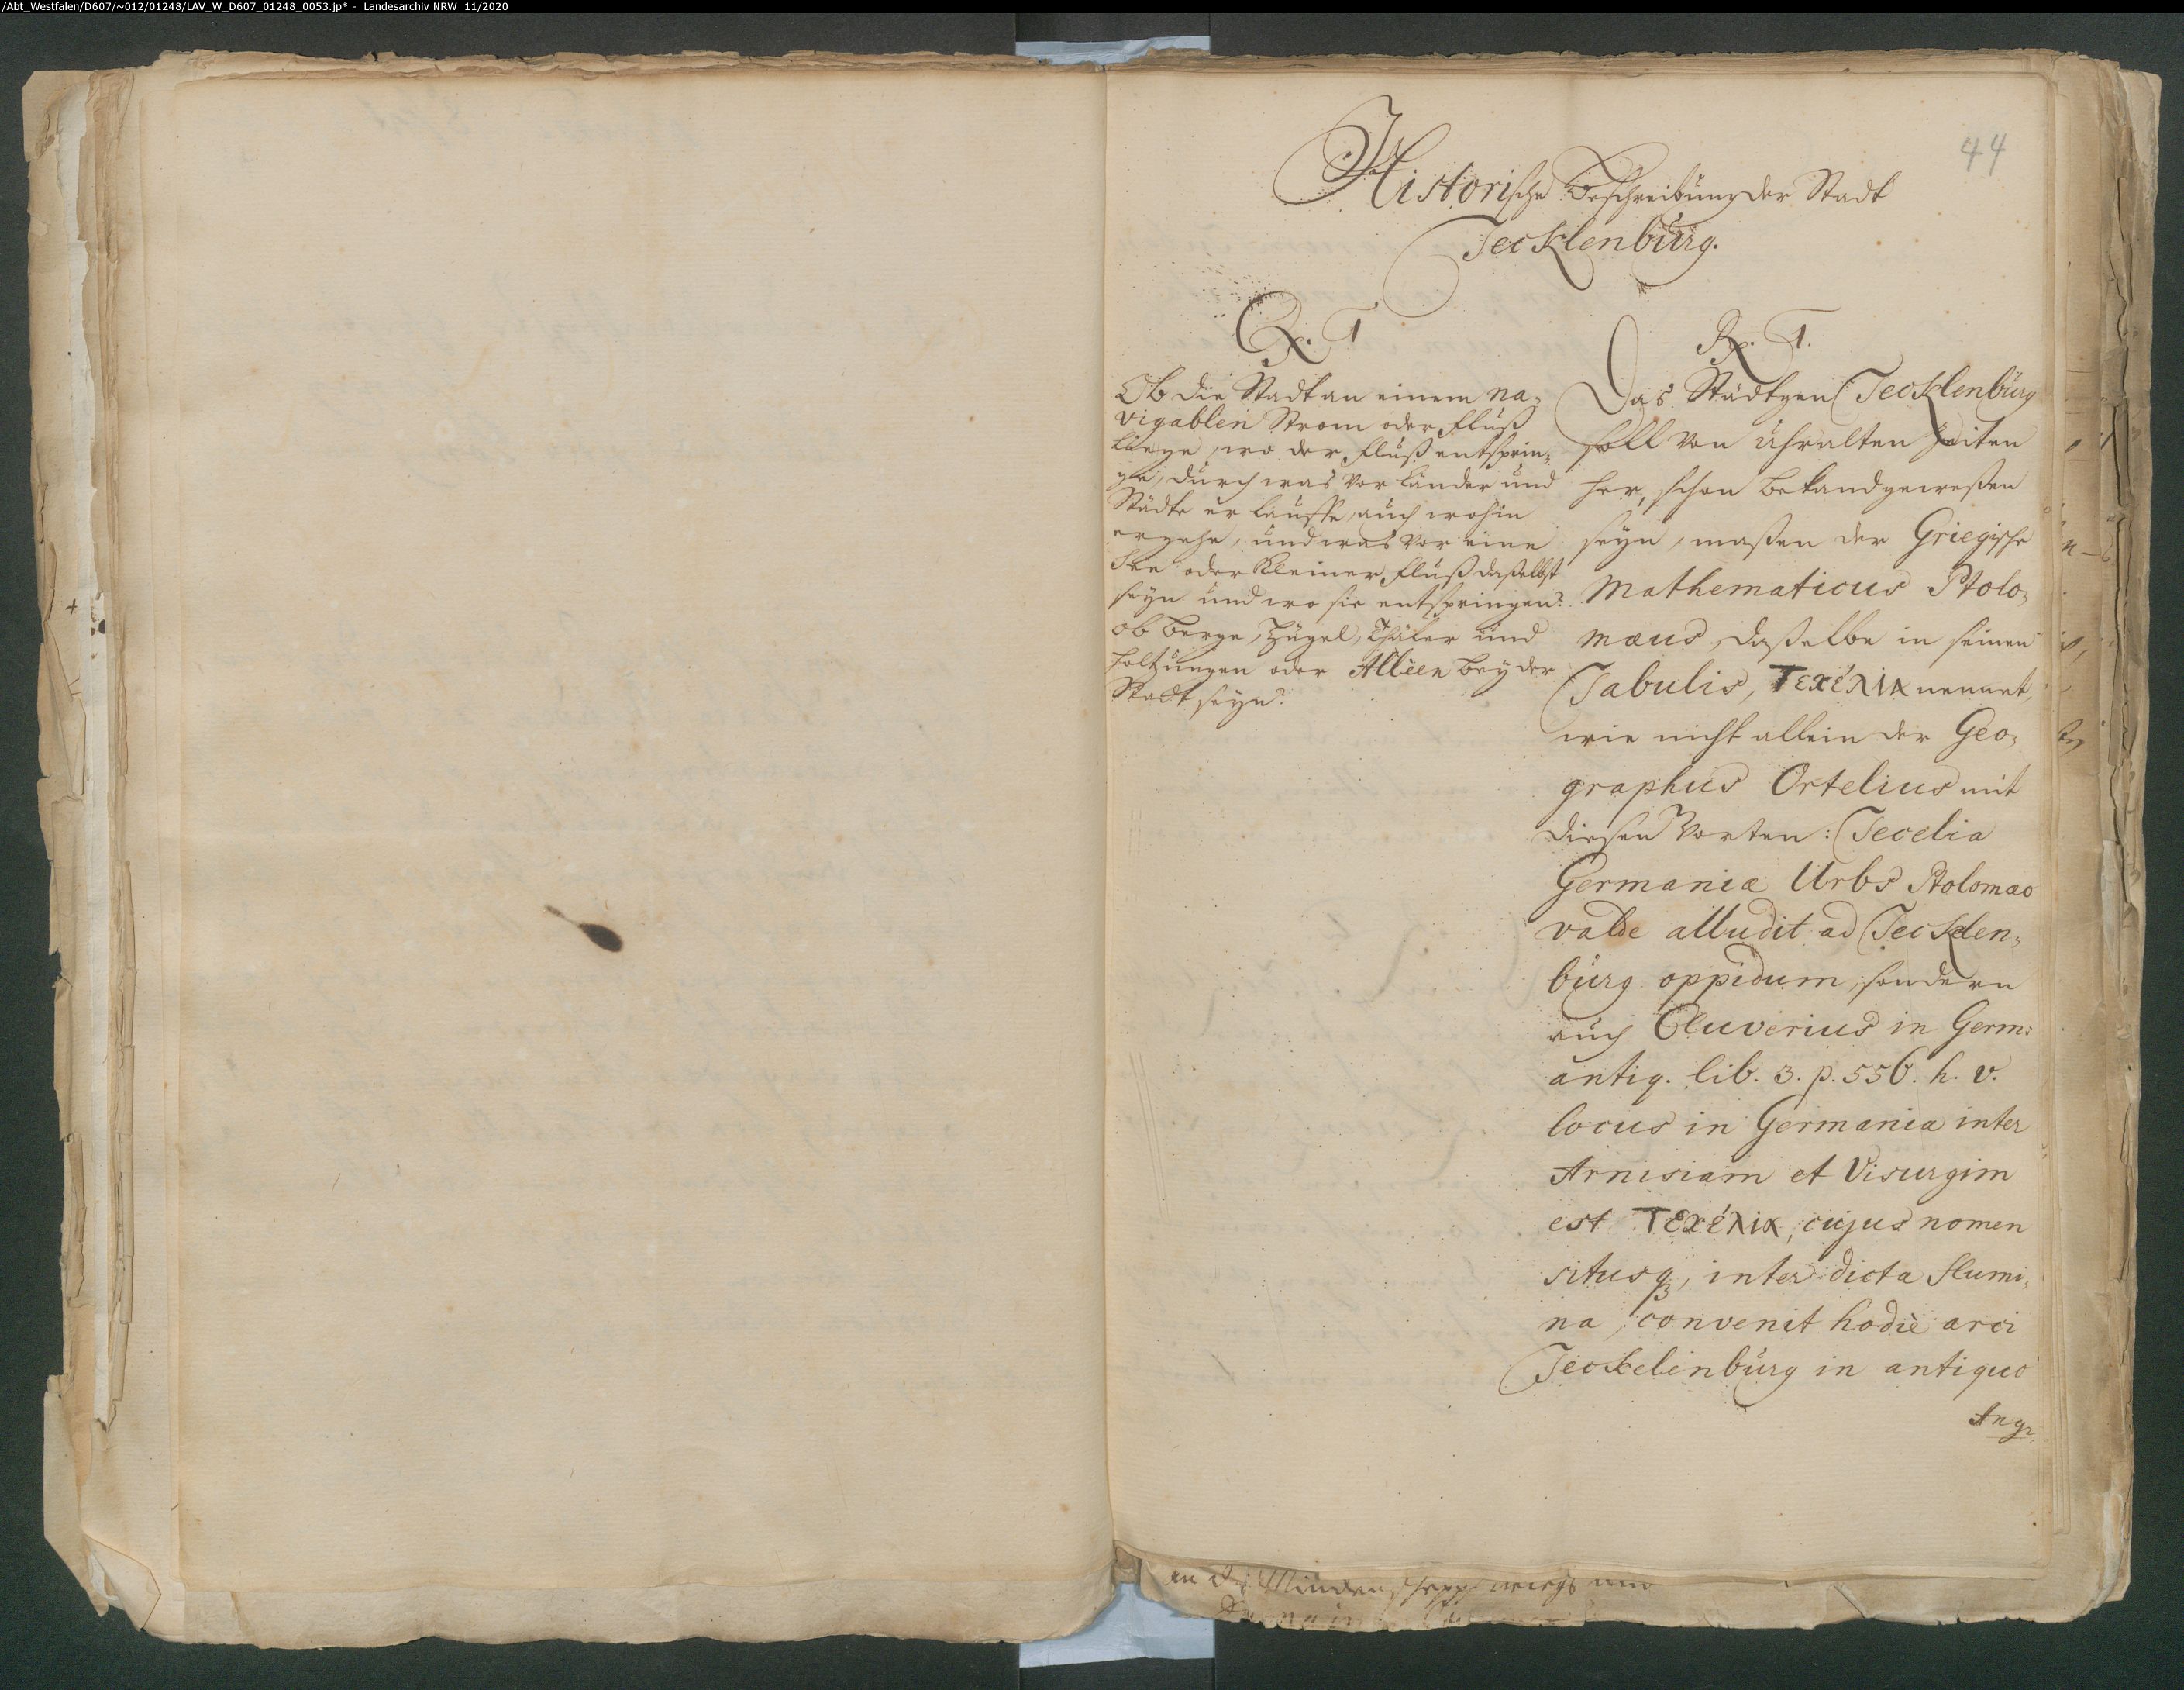 /Abt_Westfalen/D607/~012/01248/LAV_W_D607_01248_0053.jp* - Landesarchiv NRW 11/2020
44
Historische Beschreibung der Stadt
Tecklenburg.
Q. 1
Ob die Stadt an einem na-
vigablen Strom oder Fluß
liege, wo der Fluß entsprin-
ge, durch was vor Länder und
Städte er lauffe, auch wohin
er gehe, und was vor eine
See oder kleiner Fluß daselbst
seyn und wo sie entspringen?
ob Berge, Hügel, Thäler und
Holtzungen oder Alléen bey der
Stadt seyn?
Rx. 1.
Das Städtgen Tecklenburg
soll von uhralten Zeiten
her, schon bekand geweßen
seyn, maßen der Griegische
Mathematicus Ptolo-
mæus, daßelbe in seinen
Tabulis, Τεχέλια nennet,
wie nicht allein der Geo-
graphus Ortelius mit
diesen Worten: Tecelia
Germaniæ Urbs Ptolomæo
valde alludit ad Tecklen-
burg oppidum, sondern
auch Cluverius in Germ:
antiq. lib. 3. p. 556. h. v.
locus in Germania inter
Amisiam et Visurgim
est Τεχέλια, cujus nomen
situsq, inter dicta flumi-
na, convenit hodiè arci
Teckelenburg in antiquo
Ang-